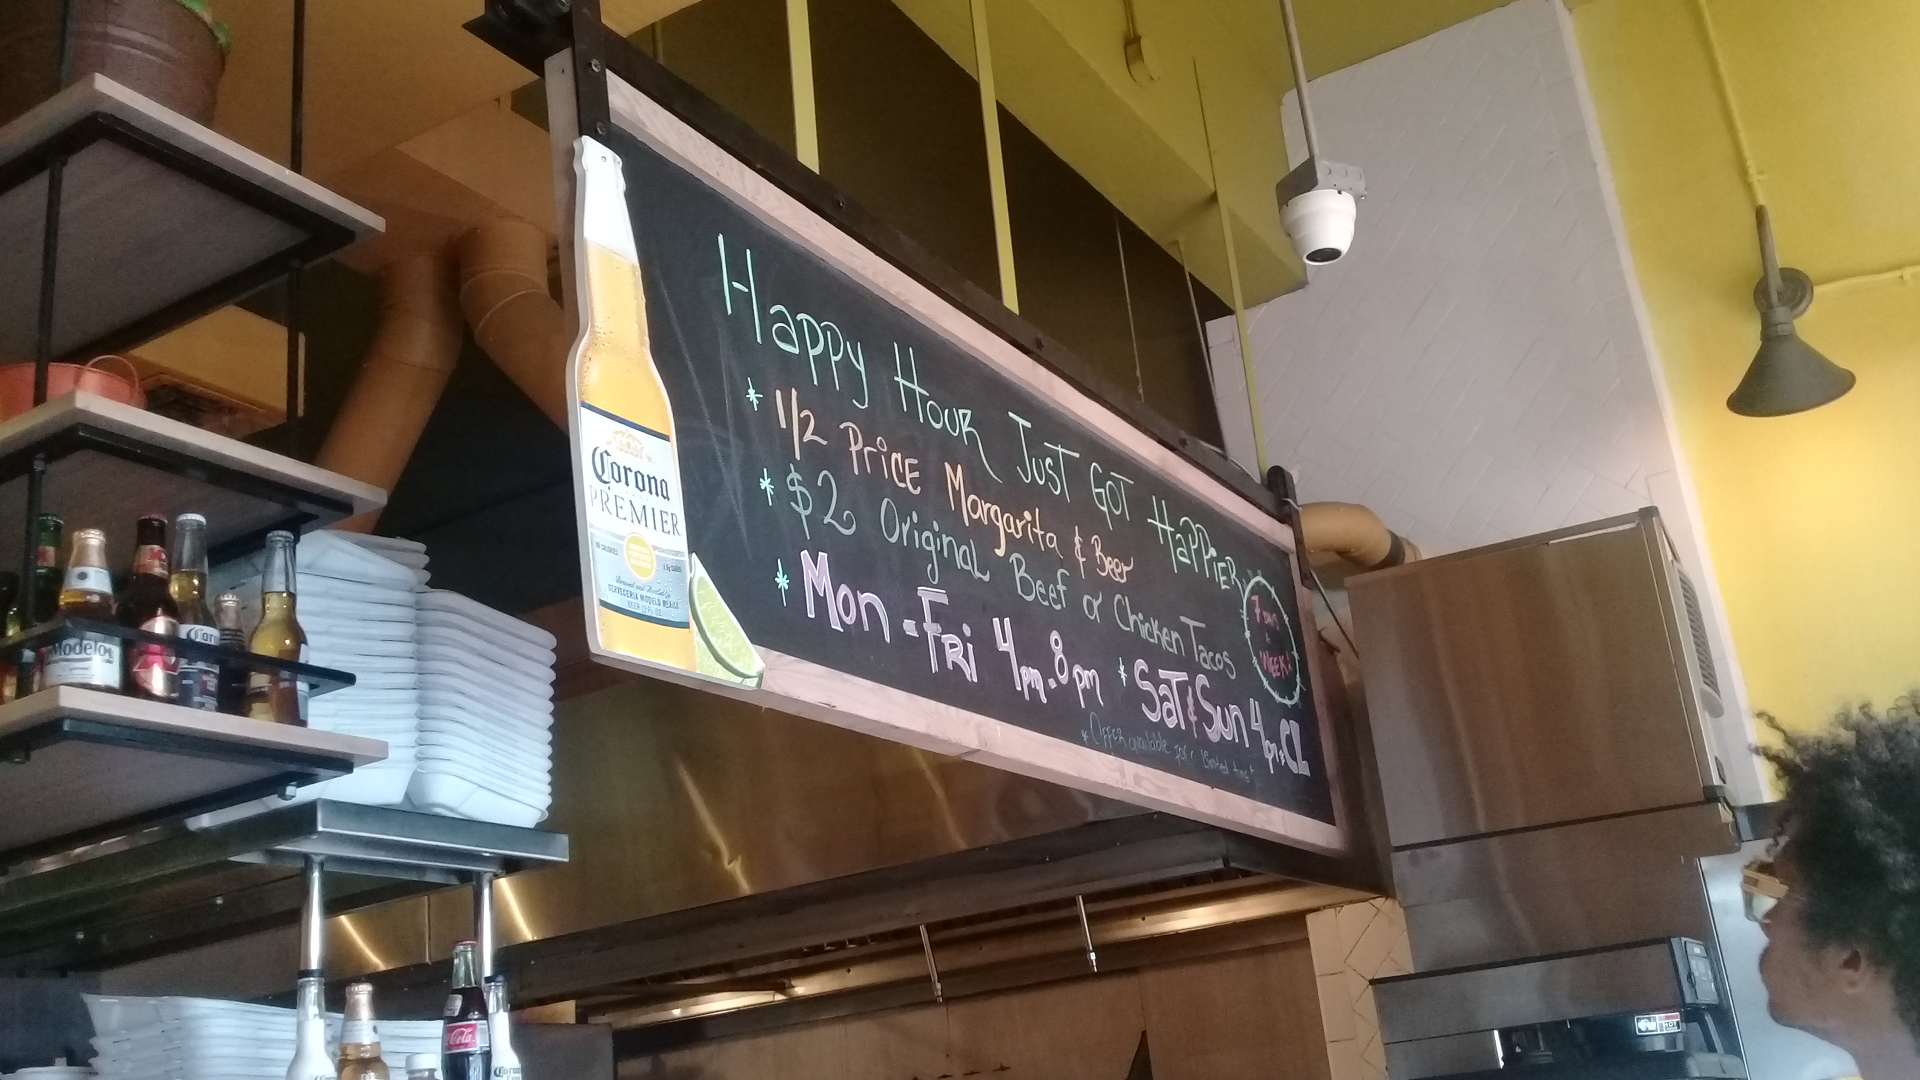 Happy Hour Just Got Happier
* 1/2 Price Margarita & Beer
* $2 Original Beef or Chicken Tacos
* Mon - Fri 4pm - 8pm * Sat & Sun 4pm - CL
* Offer available for limited time *
7 Days
A
Week!
Corona
PREMIER
CERVECERIA MODELO MEXICO
Modelo
Coron
Coca-Cola
Corona